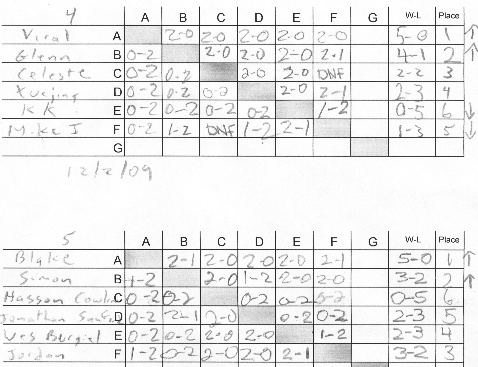 4 A B C D E F G W-L Place
Viral A 2-0 2-0 2-0 2-0 2-0 5-0 1 ↑
Glenn B 0-2 2-0 2-0 2-0 2-1 4-1 2 ↑
Celeste C 0-2 0-2 2-0 2-0 DNF 2-2 3
Xuejing D 0-2 0-2 0-2 2-0 2-1 2-3 4
KK E 0-2 0-2 0-2 0-2 1-2 0-5 6 ↓
Mike J F 0-2 1-2 DNF 1-2 2-1 1-3 5 ↓
G
12/2/09
5 A B C D E F G W-L Place
Blake A 2-1 2-0 2-0 2-0 2-1 5-0 1 ↑
Simon B 1-2 2-0 1-2 2-0 2-0 3-2 2 ↑
Hassam C 0-2 0-2 0-2 0-2 0-2 0-5 6
Jonathan D 0-2 2-1 2-0 0-2 0-2 2-3 5
Ves Burgiel E 0-2 0-2 2-0 2-0 1-2 2-3 4
Jordan F 1-2 0-2 2-0 2-0 2-1 3-2 3